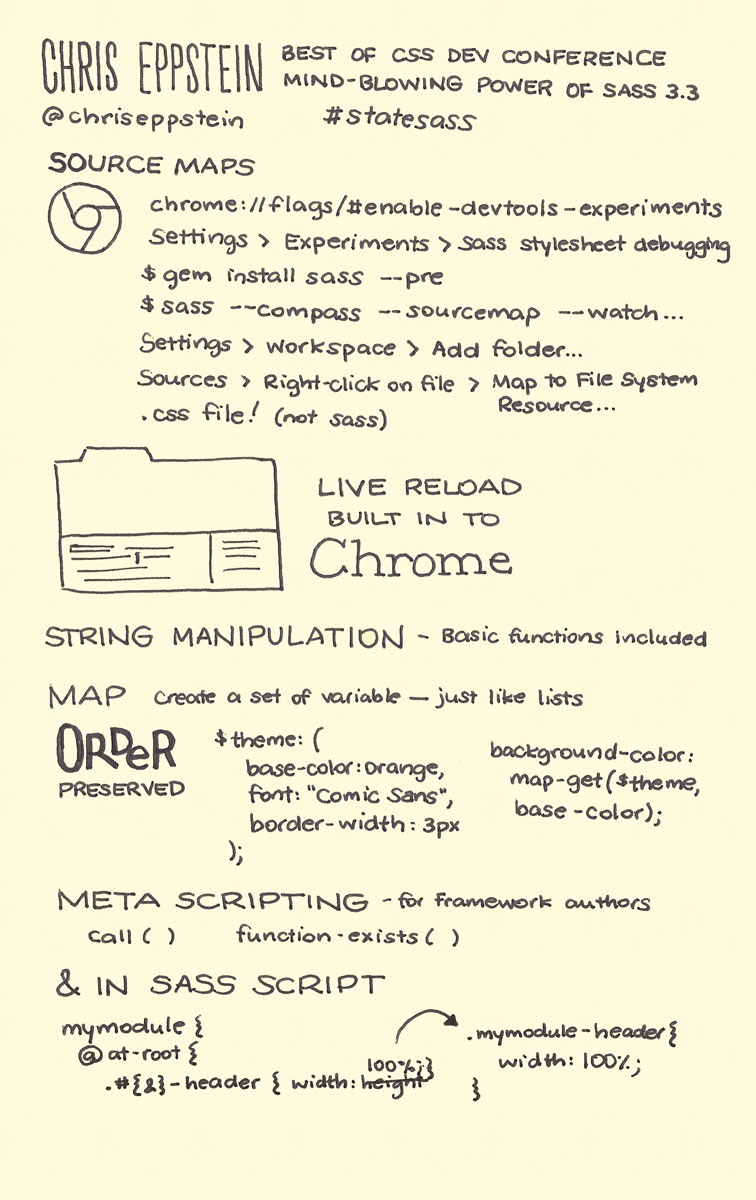 CHRIS EPPSTEIN
BEST OF CSS DEV CONFERENCE
MIND-BLOWING POWER OF SASS 3.3
@chriseppstein
#statesass
SOURCE MAPS
chrome://flags/#enable-devtools-experiments
Settings > Experiments > Sass stylesheet debugging
$ gem install sass --pre
$ sass --compass --sourcemap --watch...
Settings > Workspace > Add folder...
Sources > Right-click on file > Map to File System
Resource...
.css file! (not sass)
LIVE RELOAD
BUILT IN TO
Chrome
STRING MANIPULATION - Basic functions included
MAP Create a set of variable — just like lists
ORDER
PRESERVED
$theme: (
base-color: orange,
font: "Comic Sans",
border-width: 3px
);
background-color:
map-get($theme,
base-color);
META SCRIPTING - for framework authors
call ( ) function-exists ( )
& IN SASS SCRIPT
mymodule {
@at-root {
.#{&}-header { width: height 100%;}}
.mymodule-header {
width: 100%;
}